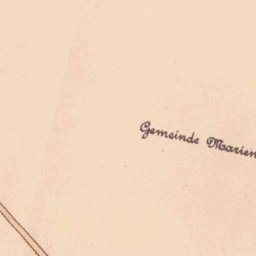 Gemeinde Marien